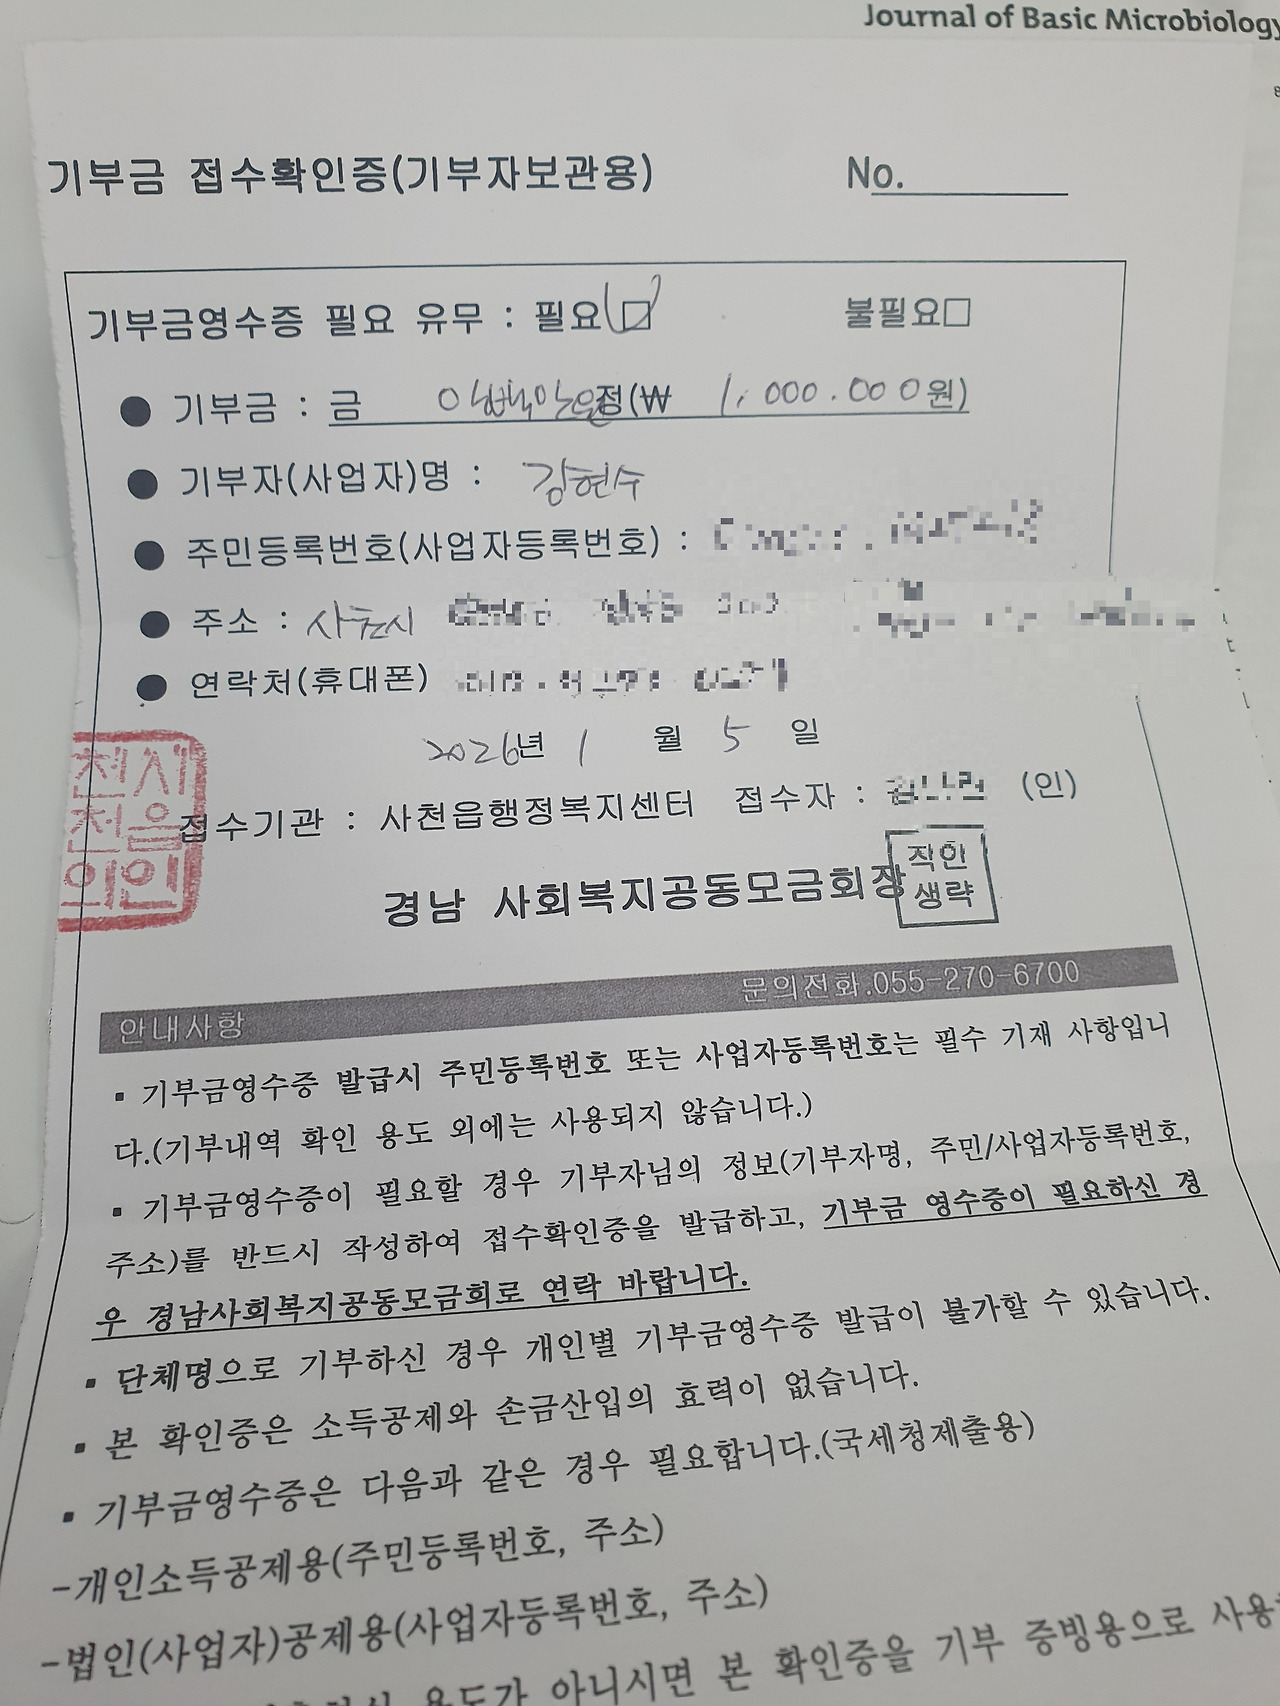 Journal of Basic Microbiology
기부금 접수확인증(기부자보관용) No.
기부금영수증 필요 유무 : 필요□ 불필요□
● 기부금 : 금 일백만원정(₩ 1,000.000원)
● 기부자(사업자)명 : 김현수
● 주민등록번호(사업자등록번호) :
● 주소 : 사천시
● 연락처(휴대폰)
2026년 1 월 5 일
천시
천읍
의인
접수기관 : 사천읍행정복지센터 접수자 : (인)
경남 사회복지공동모금회장
직인
생략
안내사항 문의전화.055-270-6700
▪ 기부금영수증 발급시 주민등록번호 또는 사업자등록번호는 필수 기재 사항입니
다.(기부내역 확인 용도 외에는 사용되지 않습니다.)
▪ 기부금영수증이 필요할 경우 기부자님의 정보(기부자명, 주민/사업자등록번호,
주소)를 반드시 작성하여 접수확인증을 발급하고, 기부금 영수증이 필요하신 경
우 경남사회복지공동모금회로 연락 바랍니다.
▪ 단체명으로 기부하신 경우 개인별 기부금영수증 발급이 불가할 수 있습니다.
▪ 본 확인증은 소득공제와 손금산입의 효력이 없습니다.
▪ 기부금영수증은 다음과 같은 경우 필요합니다.(국세청제출용)
-개인소득공제용(주민등록번호, 주소)
-법인(사업자)공제용(사업자등록번호, 주소)
용도가 아니시면 본 확인증을 기부 증빙용으로 사용